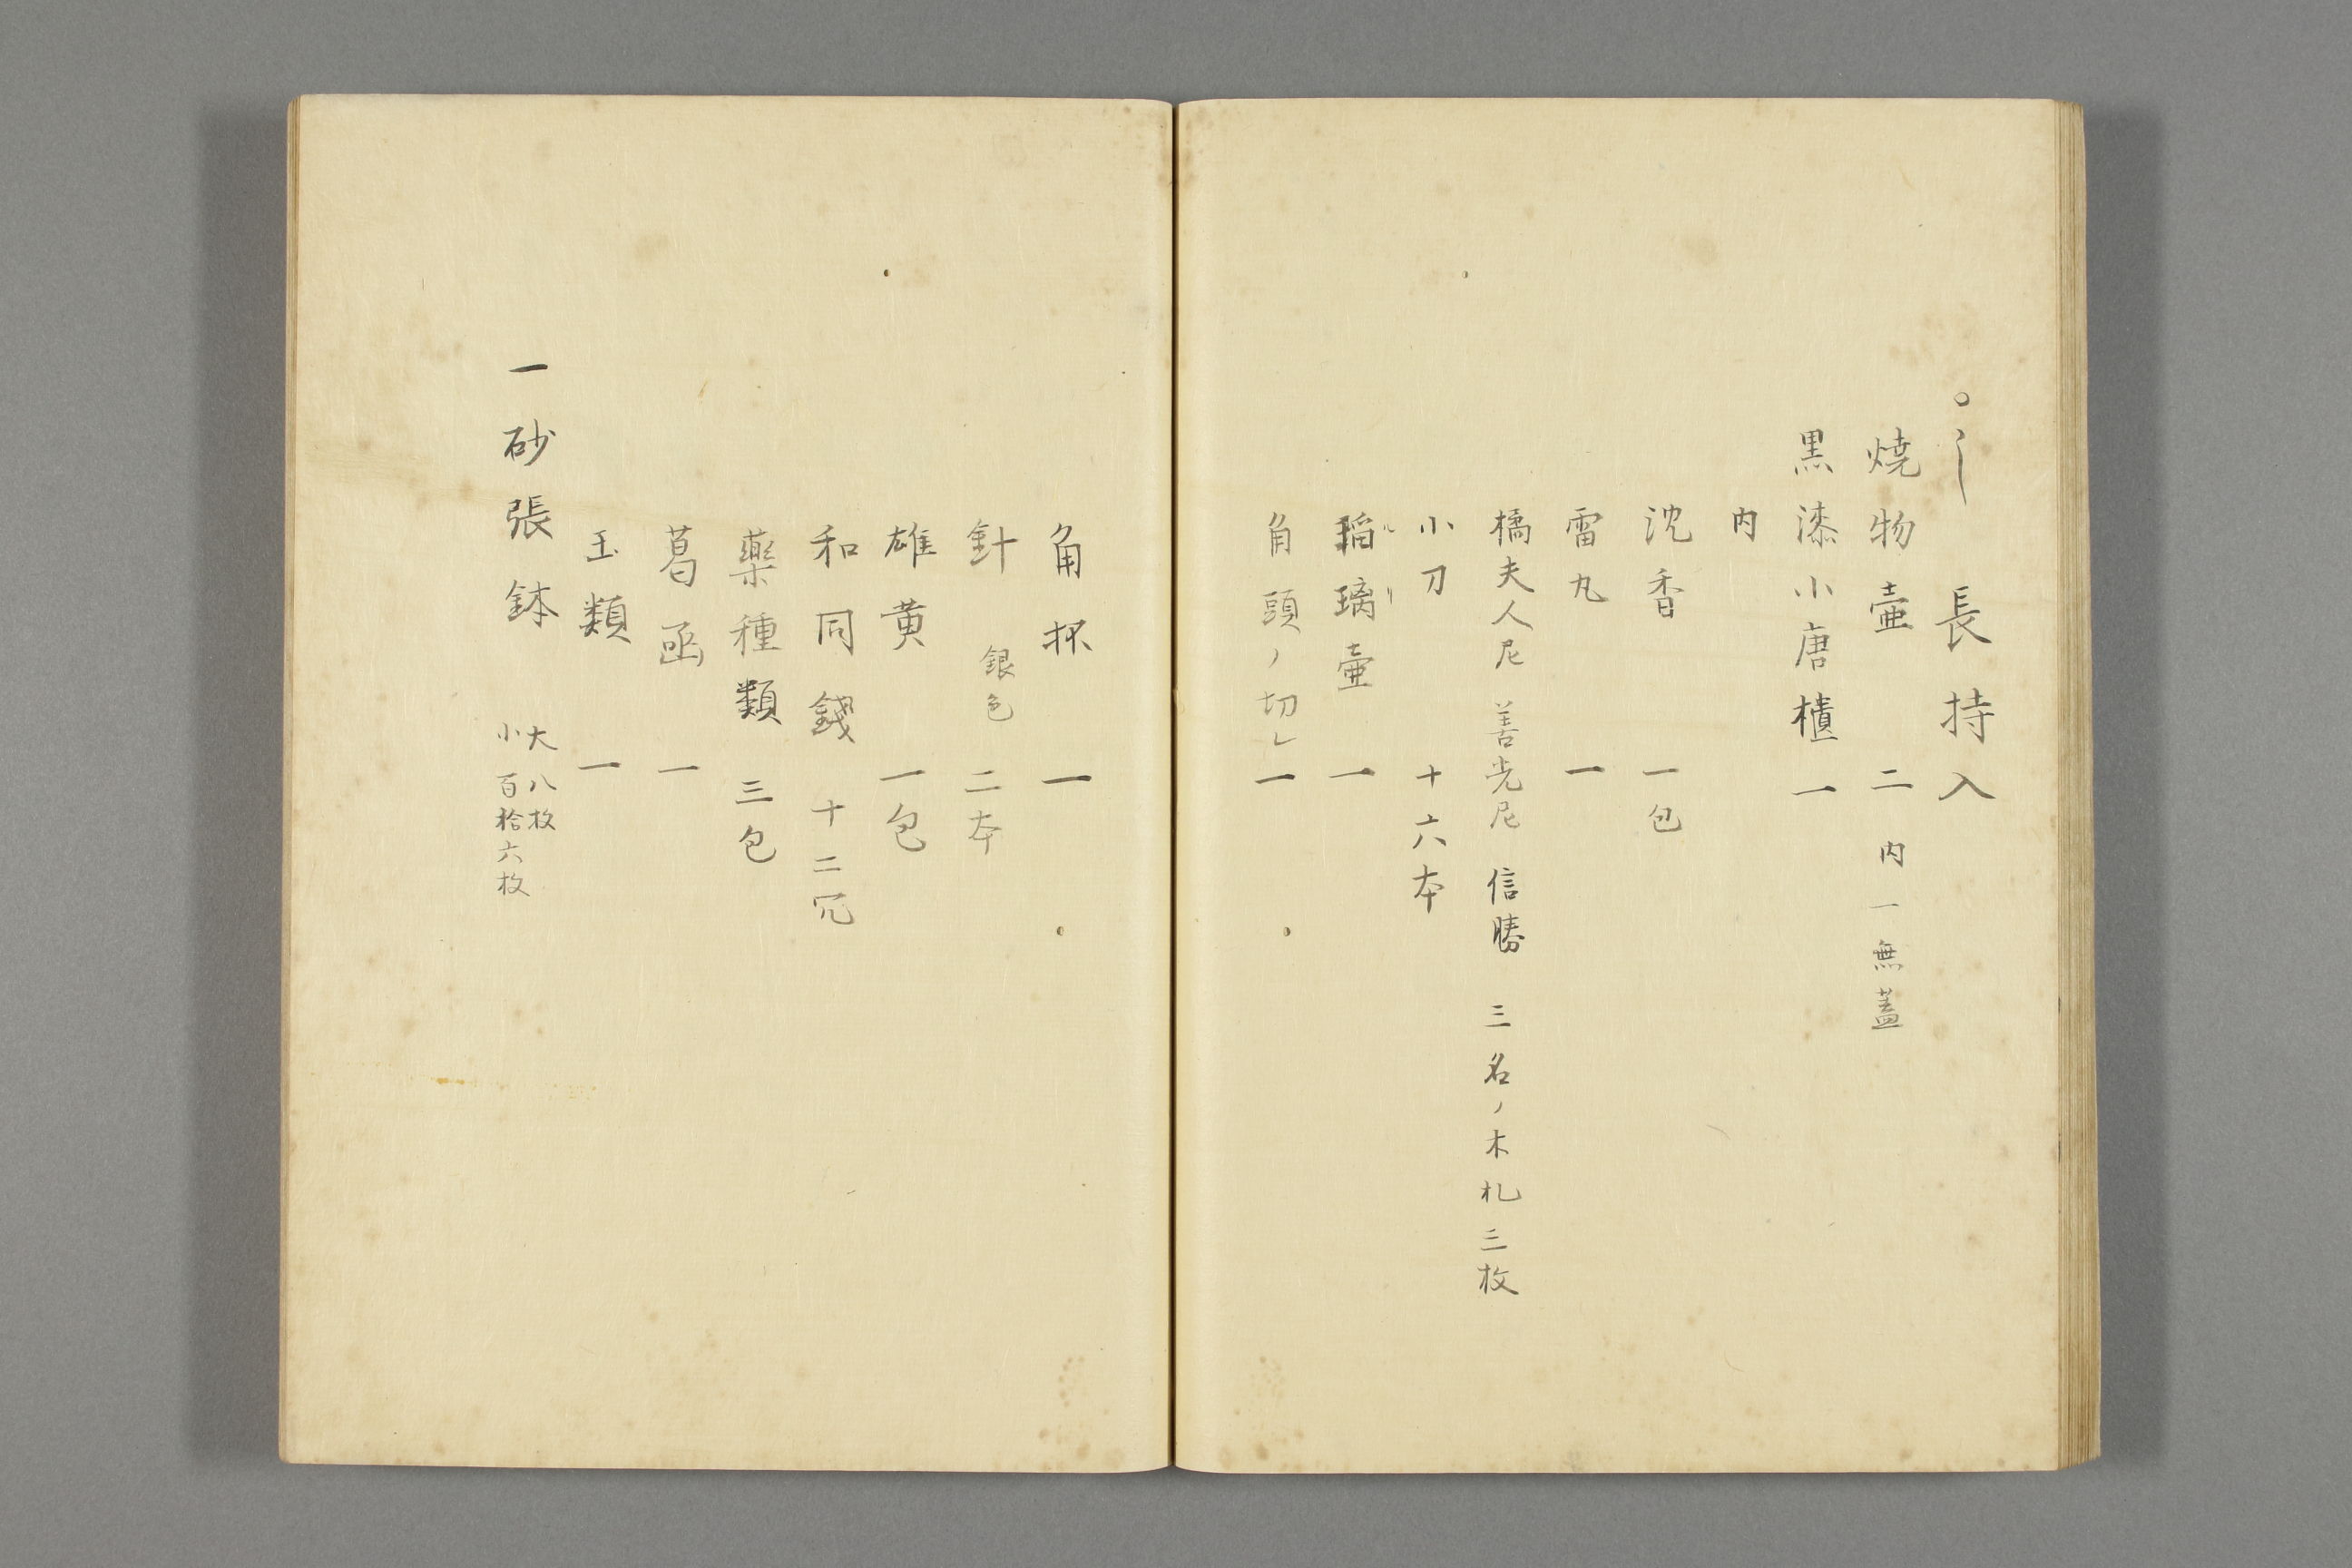 長持入
燒物壷 二 内一無蓋
黒漆小唐櫃 一
内
沈香 一包
雷丸 一
橘夫人尼 善光尼 信勝 三名ノ木札三枚
小刀 十六本
瑠璃壷 一
角頭ノ切レ 一
角杯 一
針 銀色 二本
雄黄 一包
和同錢 十二冗
藥種類 三包
葛函 一
玉類 一
一砂張鉢 大八枚
小百拾六枚